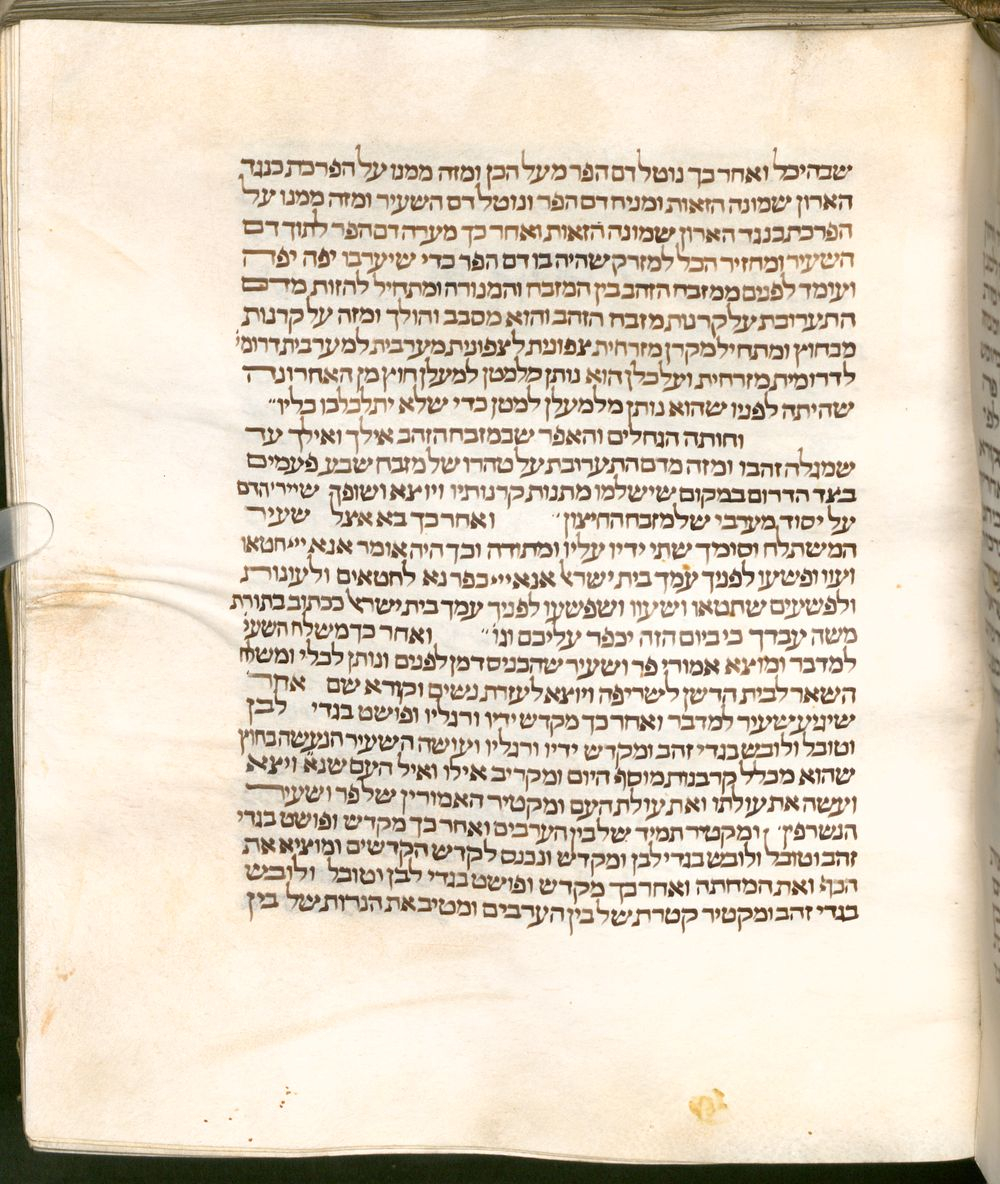 שבהיכל ואחר כך נוטל דם הפר מעל הכן ומזה ממנו על הפרכת כנגד
הארון שמונה הזאות ומניח דם הפר ונוטל דם השעיר ומזה ממנו על
הפרכת כנגד הארון שמונה הזאות ואחר כך מערה דם הפר לתוך דם
השעיר ומחזיר הכל למזרק שהיה בו דם הפר כדי שיערבו יפה יפה
ועומד לפנים ממזבח הזהב בין המזבח והמנורה ומתחיל להזות מדם
התערובת על קרנות מזבח הזהב והוא מסבב והולך ומזה על קרנות
מבחוץ ומתחיל מקרן מזרחית צפונית לצפונית מערבית למערבית דרומי׳
לדרומית מזרחית ועל כלן הוא נותן מלמטן למעלן חוץ מן האחרונה
שהיתה לפניו שהוא נותן מלמעלן למטן כדי שלא יתלכלכו כליו״
וחותה הגחלים והאפר שבמזבח הזהב אילך ואילך עד
שמגלה זהבו ומזה מדם התערובת על טהרו של מזבח שבע פעמים
בצד הדרום במקום שישלמו מתנות קרנותיו ויוצא ושופך שיירי הדם
על יסוד מערבי של מזבח החיצון״ ואחר כך בא אצל שעיר
המשתלח וסומך שתי ידיו עליו ומתודה וכך היה אומר אנא ייי חטאו
ועוו ופשעו לפניך עמך בית ישראל אנא ייי כפר נא לחטאים ולעונות
ולפשעים שחטאו ושעוו ושפשעו לפניך עמך בית ישראל ככתוב בתורת
משה עבדך כי ביום הזה יכפר עליכם וגו״ ואחר כך משלח השעי׳
למדבר ומוצא אמורי פר ושעיר שהכניס דמן לפנים ונותן לכלי ומשלח
השאר לבית הדשן לשריפה ויוצא לעזרת נשים וקורא שם אחר
שיגיע שעיר למדבר ואחר כך מקדש ידיו ורגליו ופושט בגדי לבן
וטובל ולובש בגדי זהב ומקדש ידיו ורגליו ועושה השעיר הנעשה בחוץ
שהוא מכלל קרבנות מוסף היום ומקריב אילו ואיל העם שנא׳ ויצא
ועשה את עולתו ואת עולת העם ומקטיר האמורין של פר ושעיר
הנשרפין ומקטיר תמיד של בין הערבים ואחר כך מקדש ופושט בגדי
זהב וטובל ולובש בגדי לבן ומקדש ונכנס לקדש הקדשים ומוציא את
הכף ואת המחתה ואחר כך מקדש ופושט בגדי לבן וטובל ולובש
בגדי זהב ומקטיר קטרת של בין הערבים ומטיב את הנרות של בין